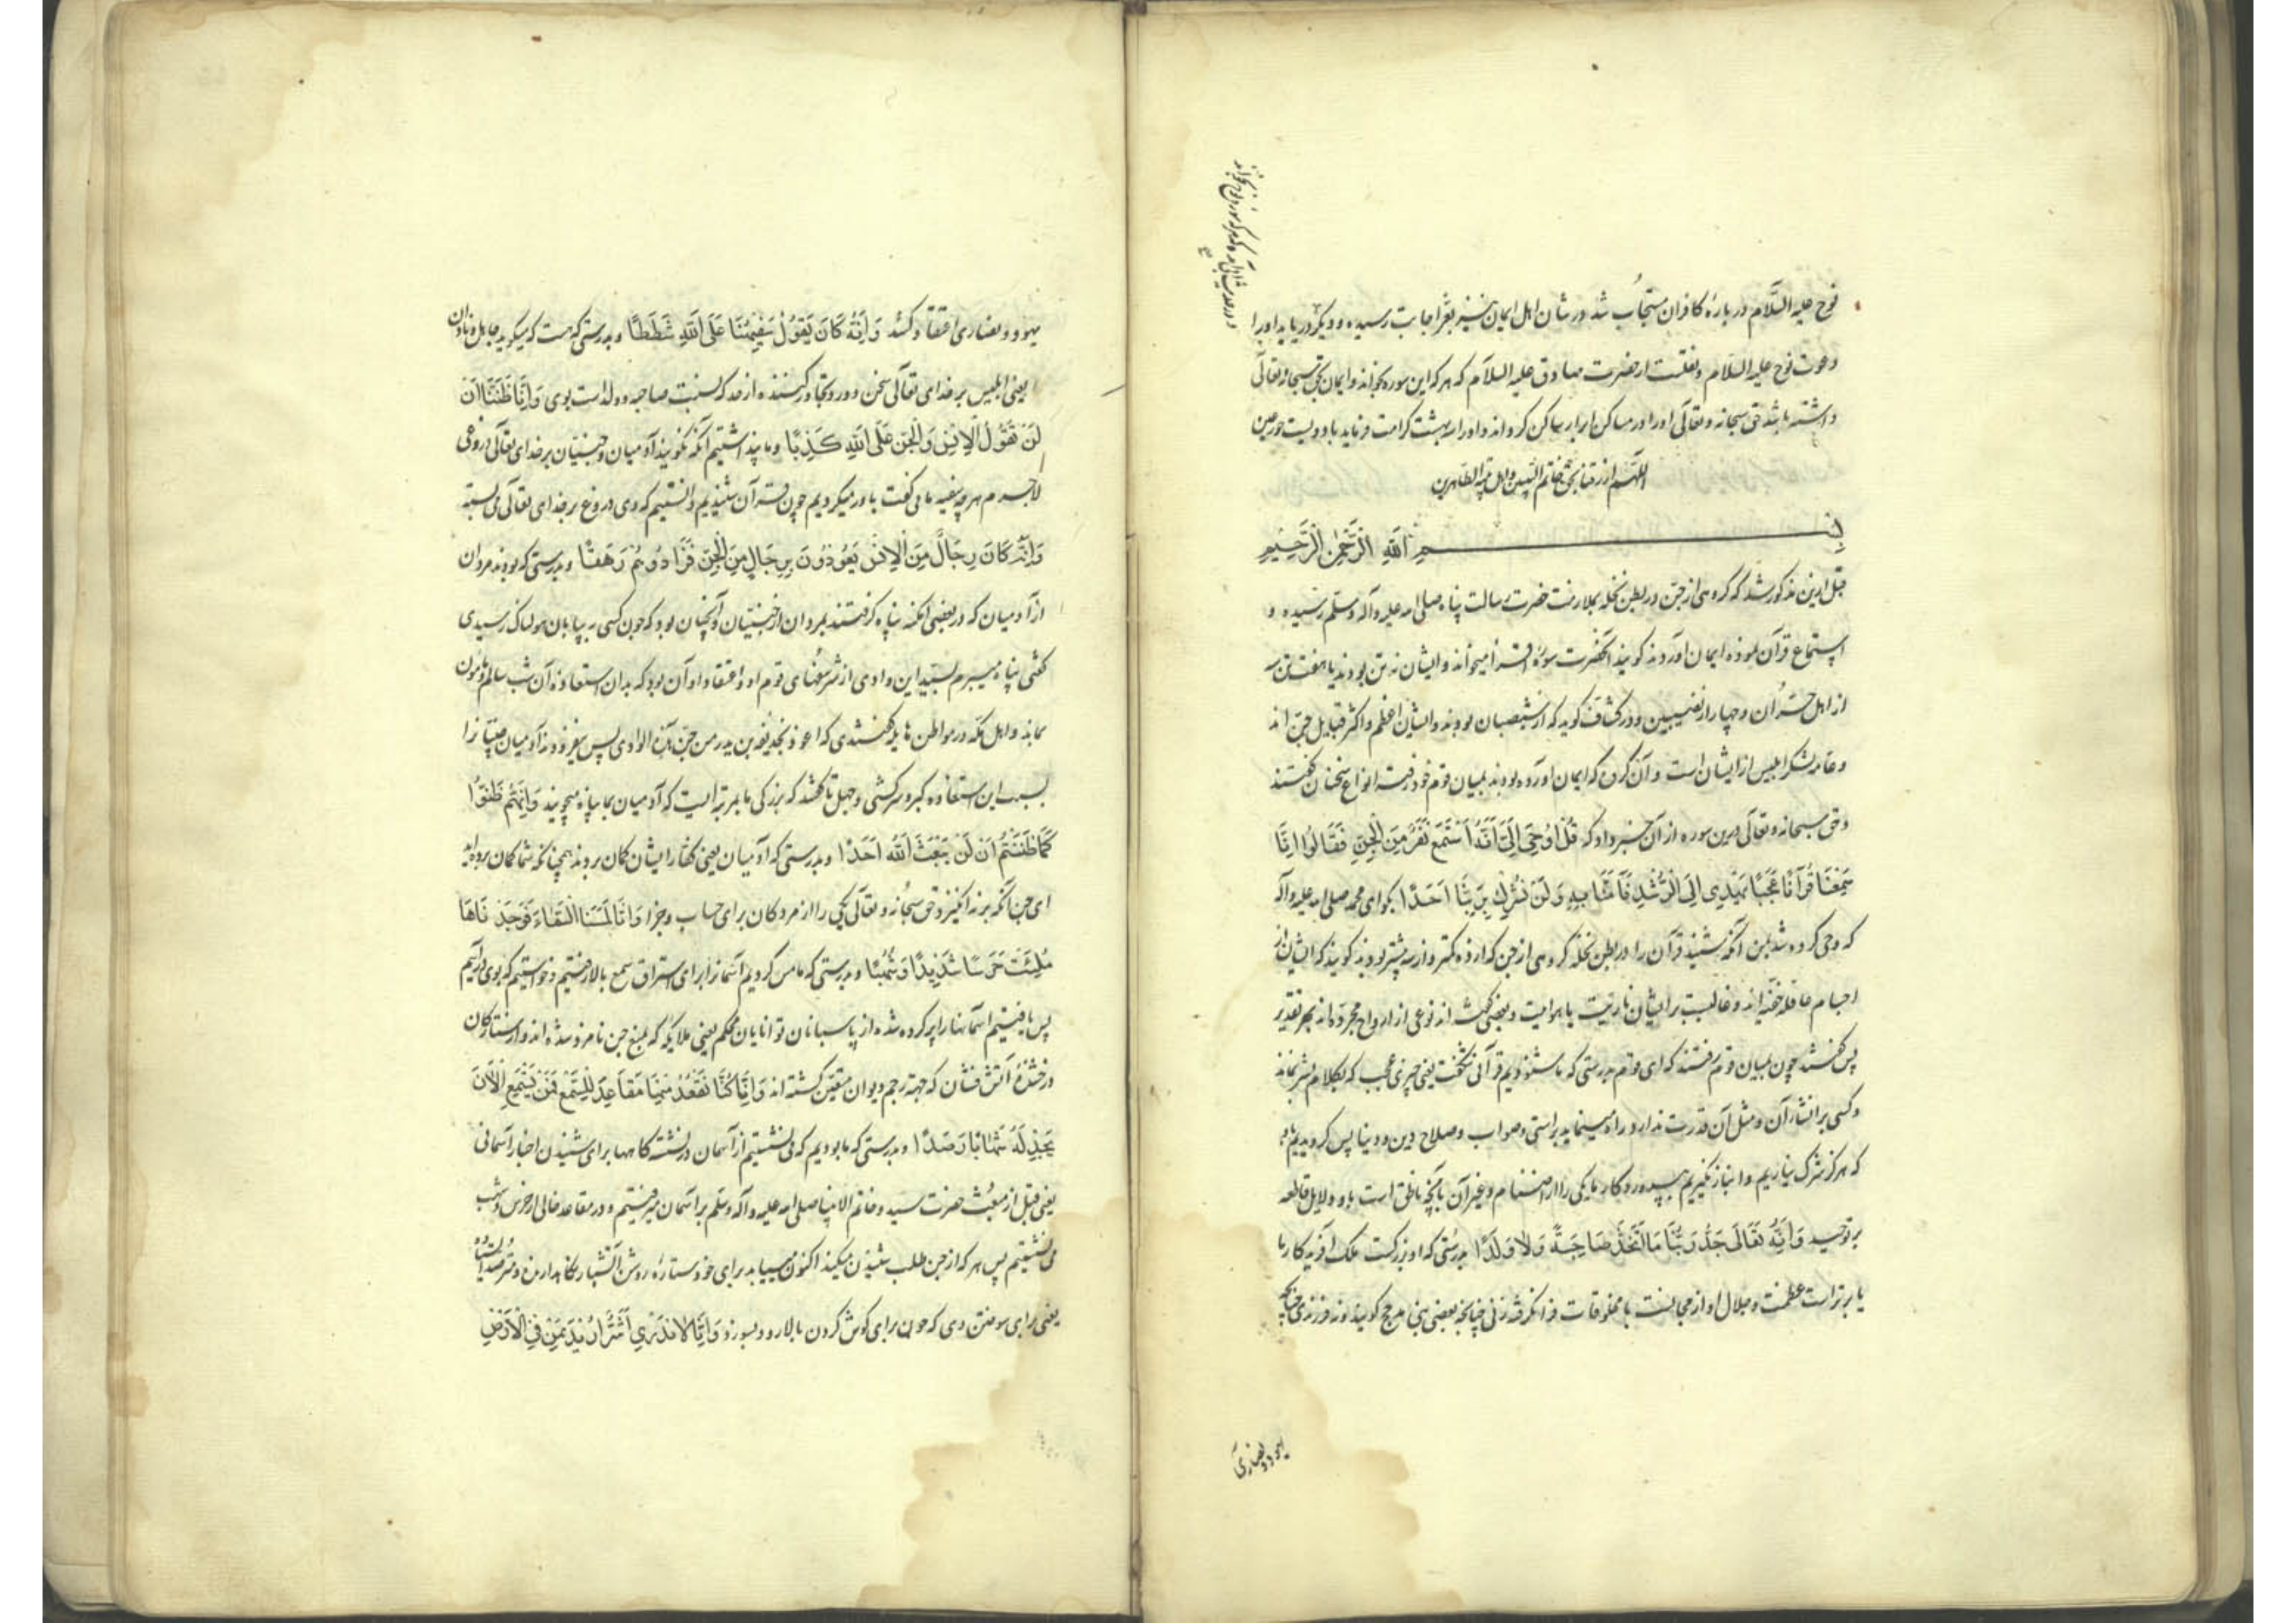 نوح علیه السّلام در باره کافران مستجاب شد در شان اهل ایمان نیز بعز اجابت رسیده و دیگر دریابد او را
دعوت نوح علیه السلام و نقلست از حضرت صادق علیه السلام که هر که این سوره بخواند و ایمان بحق سبحانه و تعالی
داشته باشد حق سبحانه و تعالی او را در مساکن ابرار ساکن گرداند و او را سه بهشت کرامت فرماید با دویست حور عین
اللهم ارزقنا بحق خاتم النبیین و اهل بیته الطاهرین
بِسْمِ اللَّهِ الرَّحْمٰنِ الرَّحِيمِ
قبل ازین مذکور شد که گروهی از جن در بطن نخله بملازمت حضرت رسالت پناه صلی الله علیه و آله وسلم رسیده و
استماع قرآن نموده ایمان آوردند گویند آنحضرت سوره اقرأ میخواند و ایشان نه تن بودند یا هفت تن سه
از اهل حران و چهار از نصیبین و در کشاف گوید که از شیصبان بودند و ایشان اعظم و اکثر قبایل جن اند
و عامه لشکر ابلیس از ایشان است و آن گروه که ایمان آورده بودند بمیان قوم خود رفته انواع سخنان گفتند
و حق سبحانه و تعالی درین سوره از آن خبر داد که قُلْ اُوحِیَ اِلَیَّ اَنَّهُ اسْتَمَعَ نَفَرٌ مِنَ الْجِنِّ فَقَالُوا اِنَّا
سَمِعْنَا قُرْآنًا عَجَبًا یَهْدِی اِلَی الرُّشْدِ فَآمَنَّا بِهِ وَلَنْ نُشْرِكَ بِرَبِّنَا اَحَدًا بگو ای محمد صلی الله علیه و آله
که وحی کرده شد بمن آنکه بشنید قرآن را در بطن نخله گروهی از جن که از ده کمتر و از سه بیشتر بودند گویند که ایشان را
اجسام عاقله خفیه اند و غالبست بر ایشان ناریت یا هوائیت و بعضی گفته اند نوعی از ارواح مجرده اند بهر تقدیر
پس گفتند چون بمیان قوم رفتند که ای قوم بدرستی که ما شنودیم قرآنی شگفت یعنی چیزی عجب که بکلام بشر نماند
و کسی بر انشاء آن و مثل آن قدرت ندارد و راه مینماید براستی و صواب و صلاح دین و دنیا پس گرویدیم بدو
که هرگز شرک نیاریم و انباز نگیریم بپروردگار ما یکی را از اصنام و غیر آن بآنچه ناطق است باو دلایل قاطعه
بر توحید وَاَنَّهُ تَعَالَی جَدُّ رَبِّنَا مَا اتَّخَذَ صَاحِبَةً وَلَا وَلَدًا بدرستی که او بزرگست ملک آفریدگار ما
یا برتر است عظمت و جلال او از مجانست با مخلوقات فرا نگرفت زنی چنانچه بعضی بنی مدلج گویند و نه فرزندی چنانچه
یهود و نصاری
و در حدیث آمده که هر که سوره نوح بخواند
یهود و نصاری اعتقاد کنند وَاَنَّهُ كَانَ یَقُولُ سَفِیهُنَا عَلَی اللَّهِ شَطَطًا و بدرستی که هست که میگوید جاهل و نادان
یعنی ابلیس بر خدای تعالی سخن دور و تجاوز کننده از حد که نسبت صاحبه و ولد است بوی وَاَنَّا ظَنَنَّا اَنْ
لَنْ تَقُولَ الْاِنْسُ وَالْجِنُّ عَلَی اللَّهِ كَذِبًا و ما پنداشتیم آنکه نگویند آدمیان و جنیان بر خدای تعالی دروغی
لاجرم هر چه سفیه ما می گفت باور میکردیم چون قرآن شنیدیم دانستیم که وی دروغ بر خدای تعالی می بسته
وَاَنَّهُ كَانَ رِجَالٌ مِنَ الْاِنْسِ یَعُوذُونَ بِرِجَالٍ مِنَ الْجِنِّ فَزَادُوهُمْ رَهَقًا و بدرستی که بودند مردان
از آدمیان که در بعضی امکنه پناه گرفتند بمردان از جنیان و آنچنان بود که چون کسی به بیابان هولناک رسیدی
گفتی پناه میبرم بسید این وادی از شر سفهای قوم او و اعتقاد او آن بود که بدان استعاذه آن شب سالم و مامون
بماند و اهل مکه در مواطن هایله گفتندی که اعوذ بحذیفه بن بدر من جن هذا الوادی پس بیفزودند آدمیان جنیانرا
بسبب این استعاذه کبر و سرکشی و جهل تا گفتند که بزرگی ما بمرتبه ایست که آدمیان بما پناه میجویند وَاَنَّهُمْ ظَنُّوا
كَمَا ظَنَنْتُمْ اَنْ لَنْ یَبْعَثَ اللَّهُ اَحَدًا و بدرستی که آدمیان یعنی کفار ایشان گمان بردند همچنانکه شما گمان برده اید
ای جن آنکه بر نه انگیزد حق سبحانه و تعالی یکی را از مردگان برای حساب و جزا وَاَنَّا لَمَسْنَا السَّمَاءَ فَوَجَدْنَاهَا
مُلِئَتْ حَرَسًا شَدِیدًا وَشُهُبًا و بدرستی که ما مس کردیم آسمانرا برای استراق سمع بالا رفتیم و خواستیم که بوی در آییم
پس یافتیم آسمانها را پر کرده شده از پاسبانان توانایان محکم یعنی ملایکه که بمنع جن نامزد شده اند و از ستارگان
درخشنده آتش فشان که جهة رجم دیوان معین گشته اند وَاَنَّا كُنَّا نَقْعُدُ مِنْهَا مَقَاعِدَ لِلسَّمْعِ فَمَنْ یَسْتَمِعِ الْآنَ
یَجِدْ لَهُ شِهَابًا رَصَدًا و بدرستی که ما بودیم که می نشستیم از آسمان در نشستگاهها برای شنیدن اخبار آسمانی
یعنی قبل از مبعث حضرت سید و خاتم الانبیا صلی الله علیه و آله وسلم بر آسمان میرفتیم و در مقاعد خالی از حرس و شهب
می نشستیم پس هر که از جن طلب شنیدن میکند اکنون مییابد برای خود ستاره روشن آتشبار نگاه دارنده و مترصد
یعنی برای سوختن وی که چون برای گوش کردن بالا رود بسوزد وَاَنَّا لَا نَدْرِی اَشَرٌّ اُرِیدَ بِمَنْ فِی الْاَرْضِ